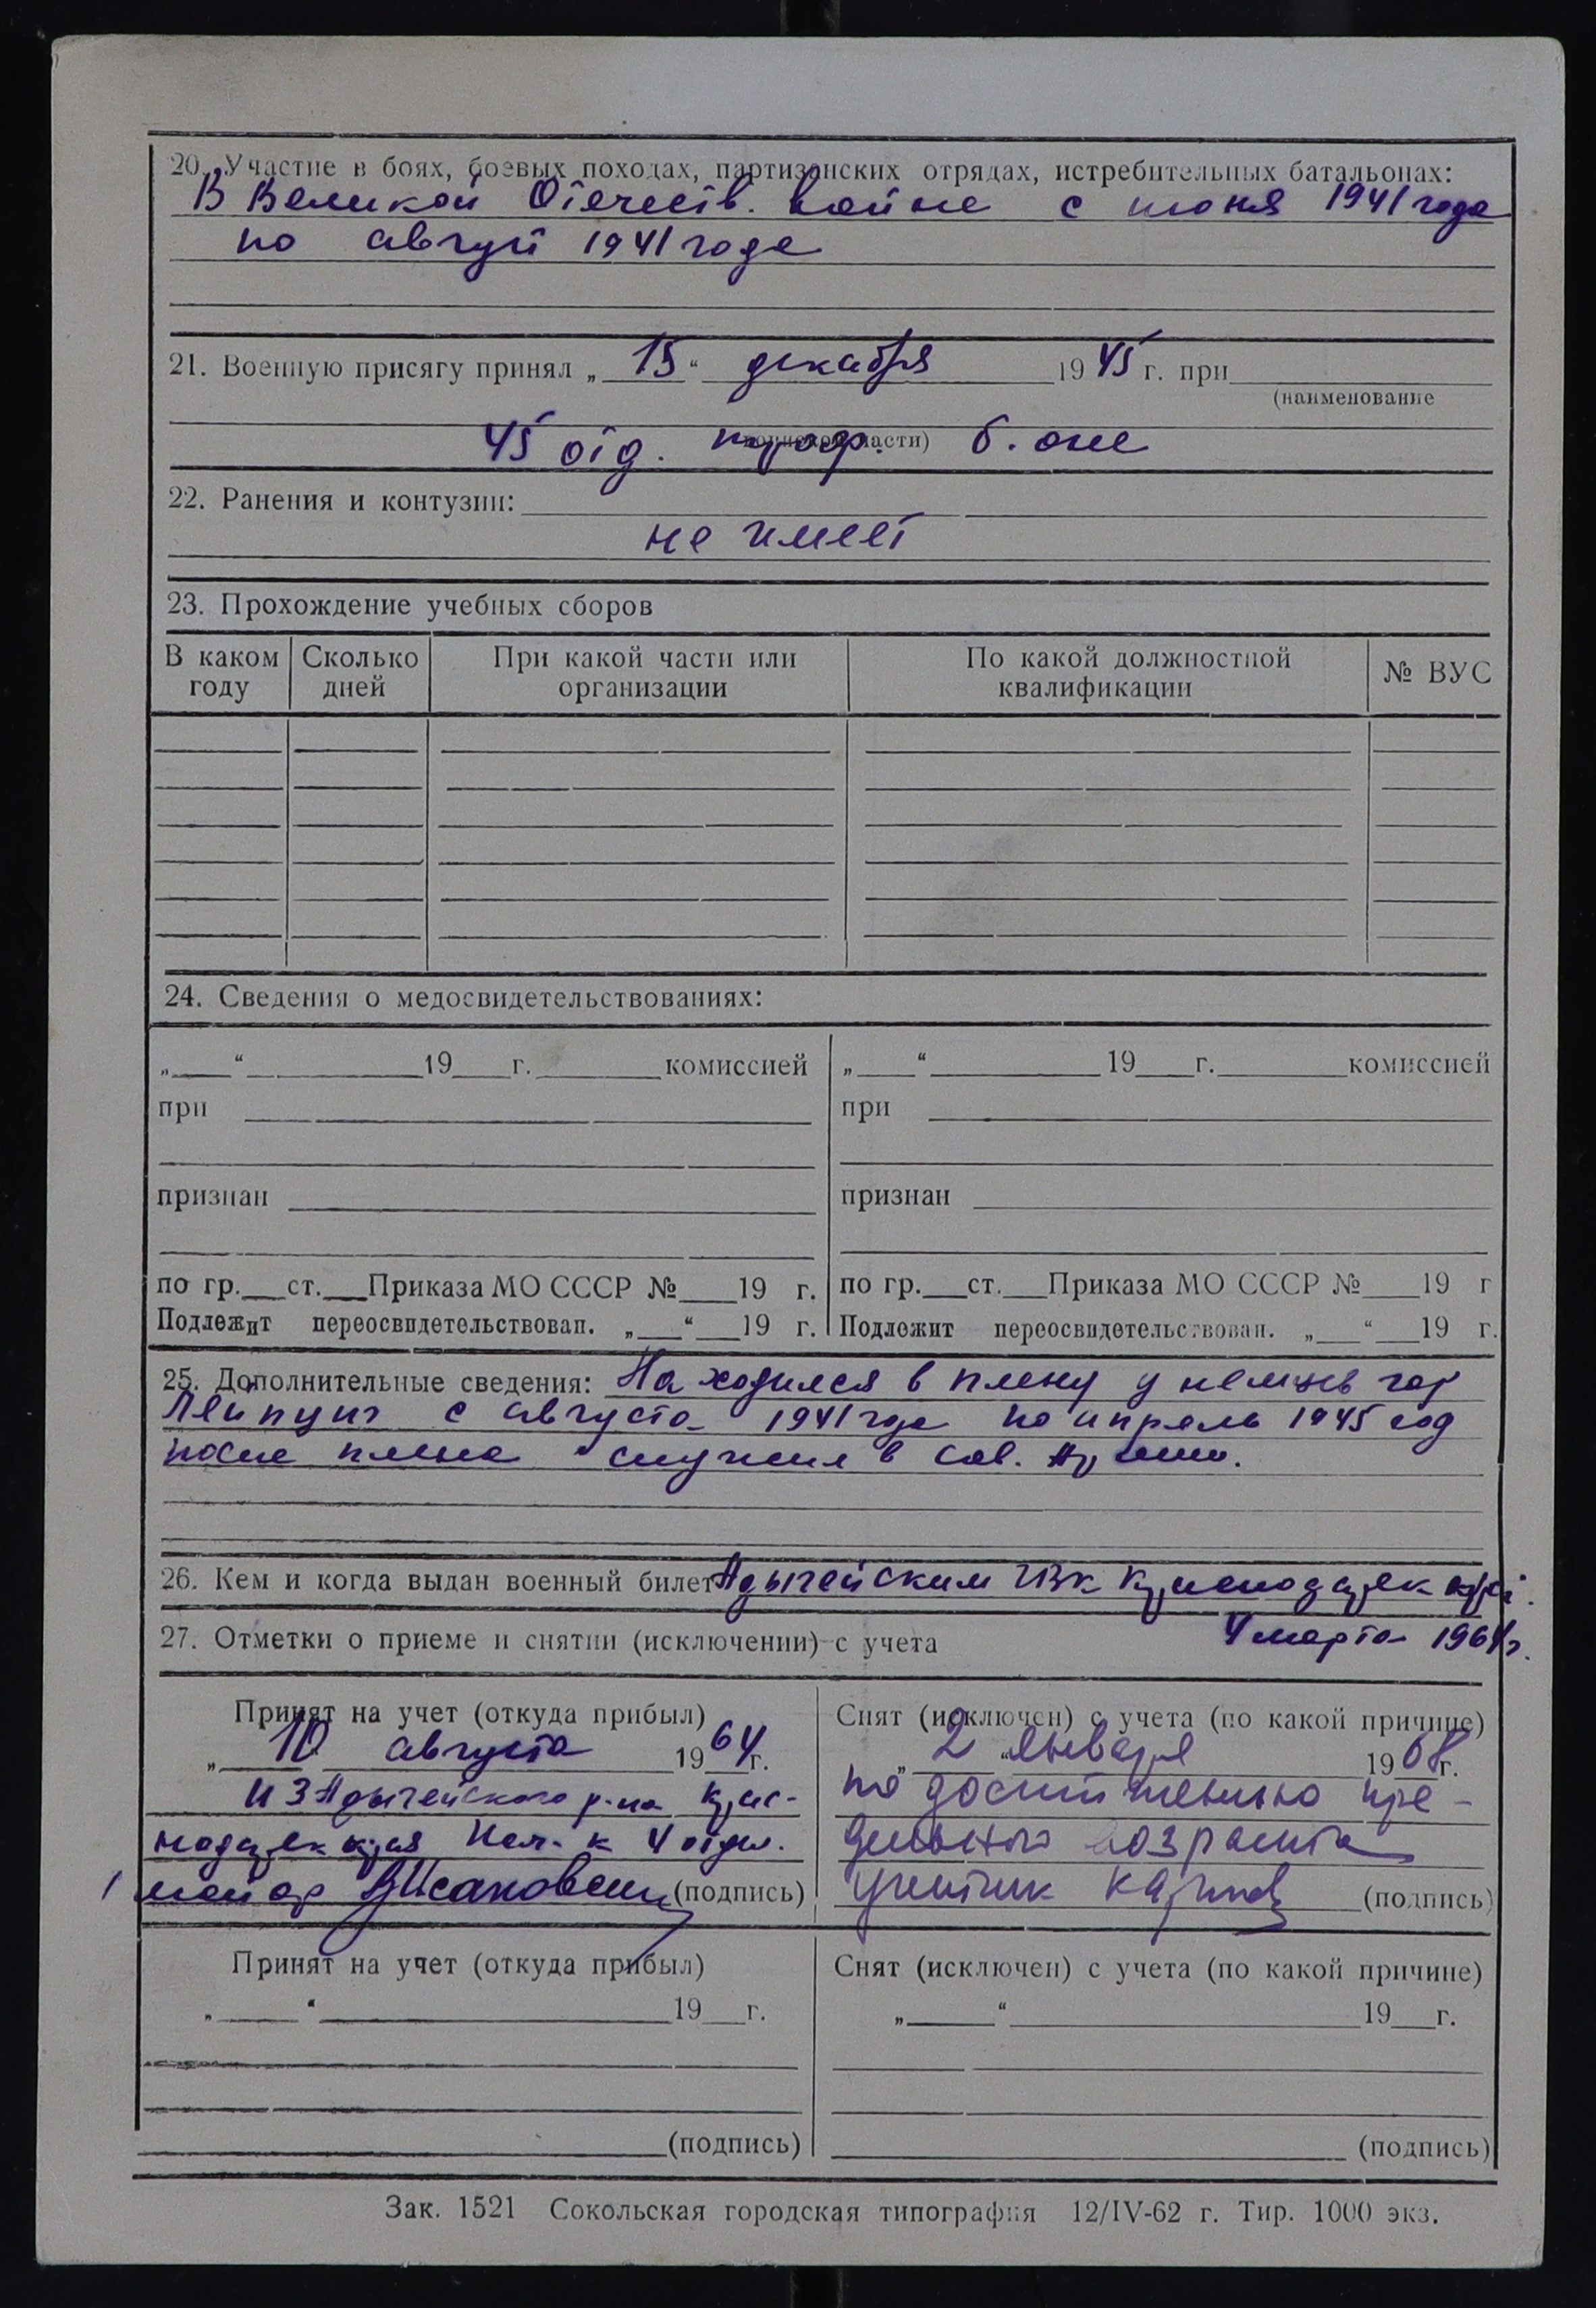 20. Участие в боях, боевых походах, партизанских отрядах, истребительных батальонах:
В Великой Отечеств. войне с июня 1941 года
по август 1941 года
21. Военную присягу принял „15“ декабря 1945 г. при
(наименование
воинской части)
45 отд. б. оне
22. Ранения и контузии:
не имеет
23. Прохождение учебных сборов
В каком году Сколько дней При какой части или организации По какой должностной квалификации № ВУС
24. Сведения о медосвидетельствованиях:
„ “ 19 г. комиссией „ “ 19 г. комиссией
при при
признан признан
по гр. ст. Приказа МО СССР № 19 г. по гр. ст. Приказа МО СССР № 19 г
Подлежит переосвидетельствован. „ “ 19 г. Подлежит переосвидетельствован. „ “ 19 г.
25. Дополнительные сведения: Находился в плену у немцев гор
Лейпциг с августа 1941 года по апрель 1945 год
после плена служил в Сов. Армии.
26. Кем и когда выдан военный билет Адыгейским ГВК Краснодарск края.
27. Отметки о приеме и снятии (исключении) с учета 4 марта 1964 г.
Принят на учет (откуда прибыл) Снят (исключен) с учета (по какой причине)
„10 августа 1964 г. „2“ января 1968 г.
из Адыгейского р-на Крас- по достижению пре-
нодарск края Нач. к 4 отдел. дельного возраста
майор (подпись) (подпись)
Принят на учет (откуда прибыл) Снят (исключен) с учета (по какой причине)
„ “ 19 г. „ “ 19 г.
(подпись) (подпись)
Зак. 1521 Сокольская городская типография 12/IV-62 г. Тир. 1000 экз.